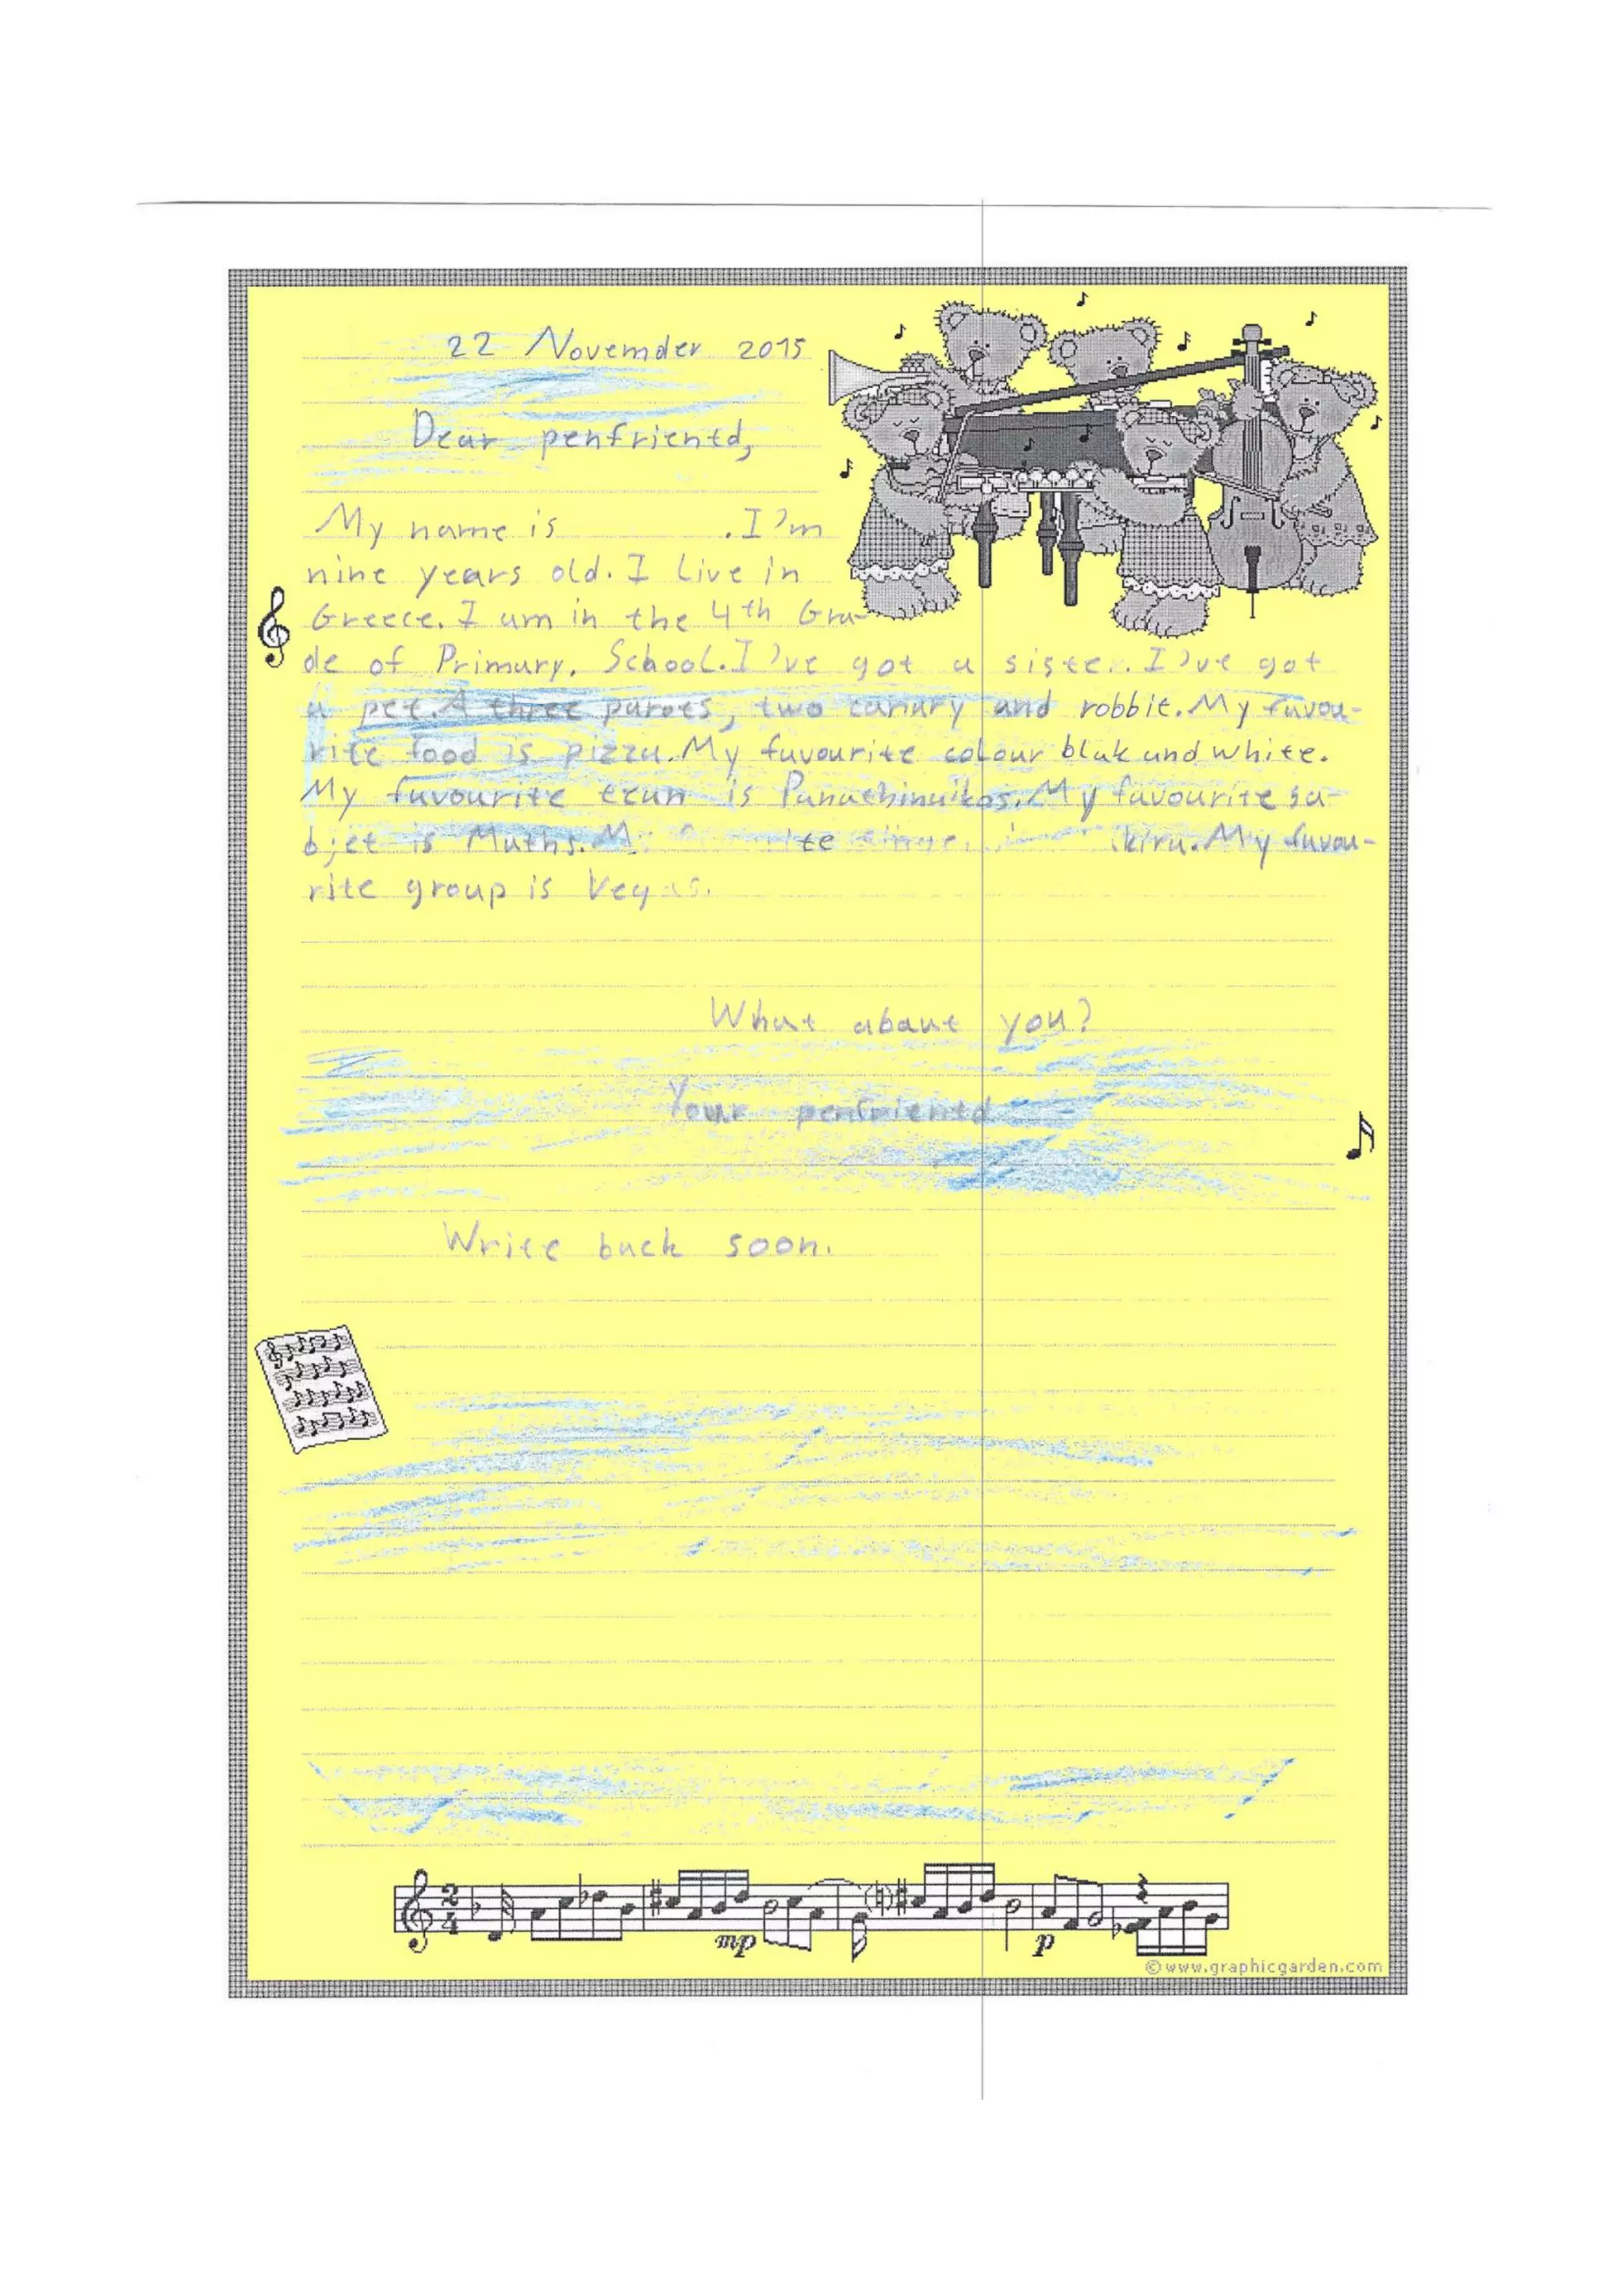 22 Novemder 2015
Dear penfrientd,
My name is . I'm
nine years old. I Live in
Greece. I am in the 4th Gra-
de of Primary. School. I've got a sister. I've got
a pet. A three parots, two canary and robbit. My favou-
rite food is pizza. My favourite colour blak and white.
My favourite team is Panathinaikos. My favourite su-
bjet is Maths. My favou-
rite group is Vegas.
What abaut you?
Your penfrientd
Write back soon.
2
4
mp
p
©www.graphicgarden.com